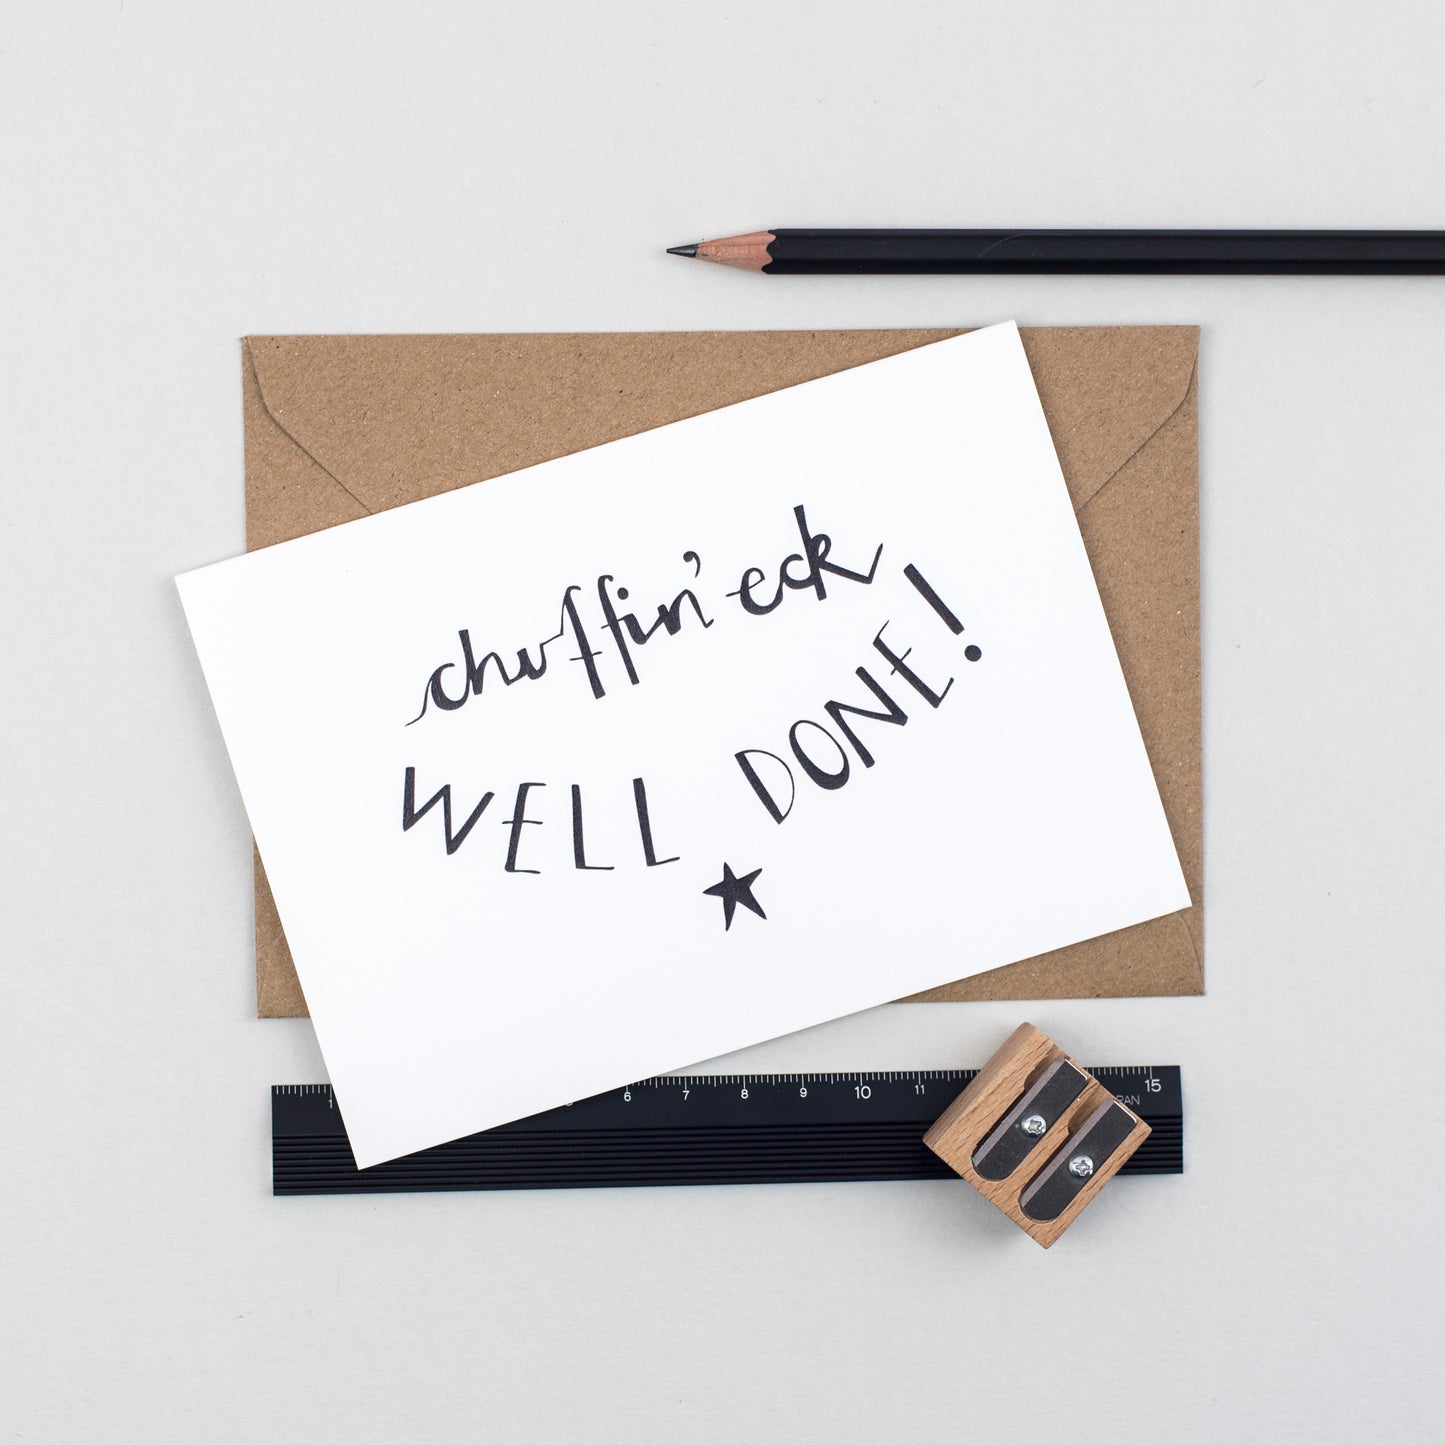 chuffin' eck
WELL DONE!
1 6 7 8 9 10 11 15